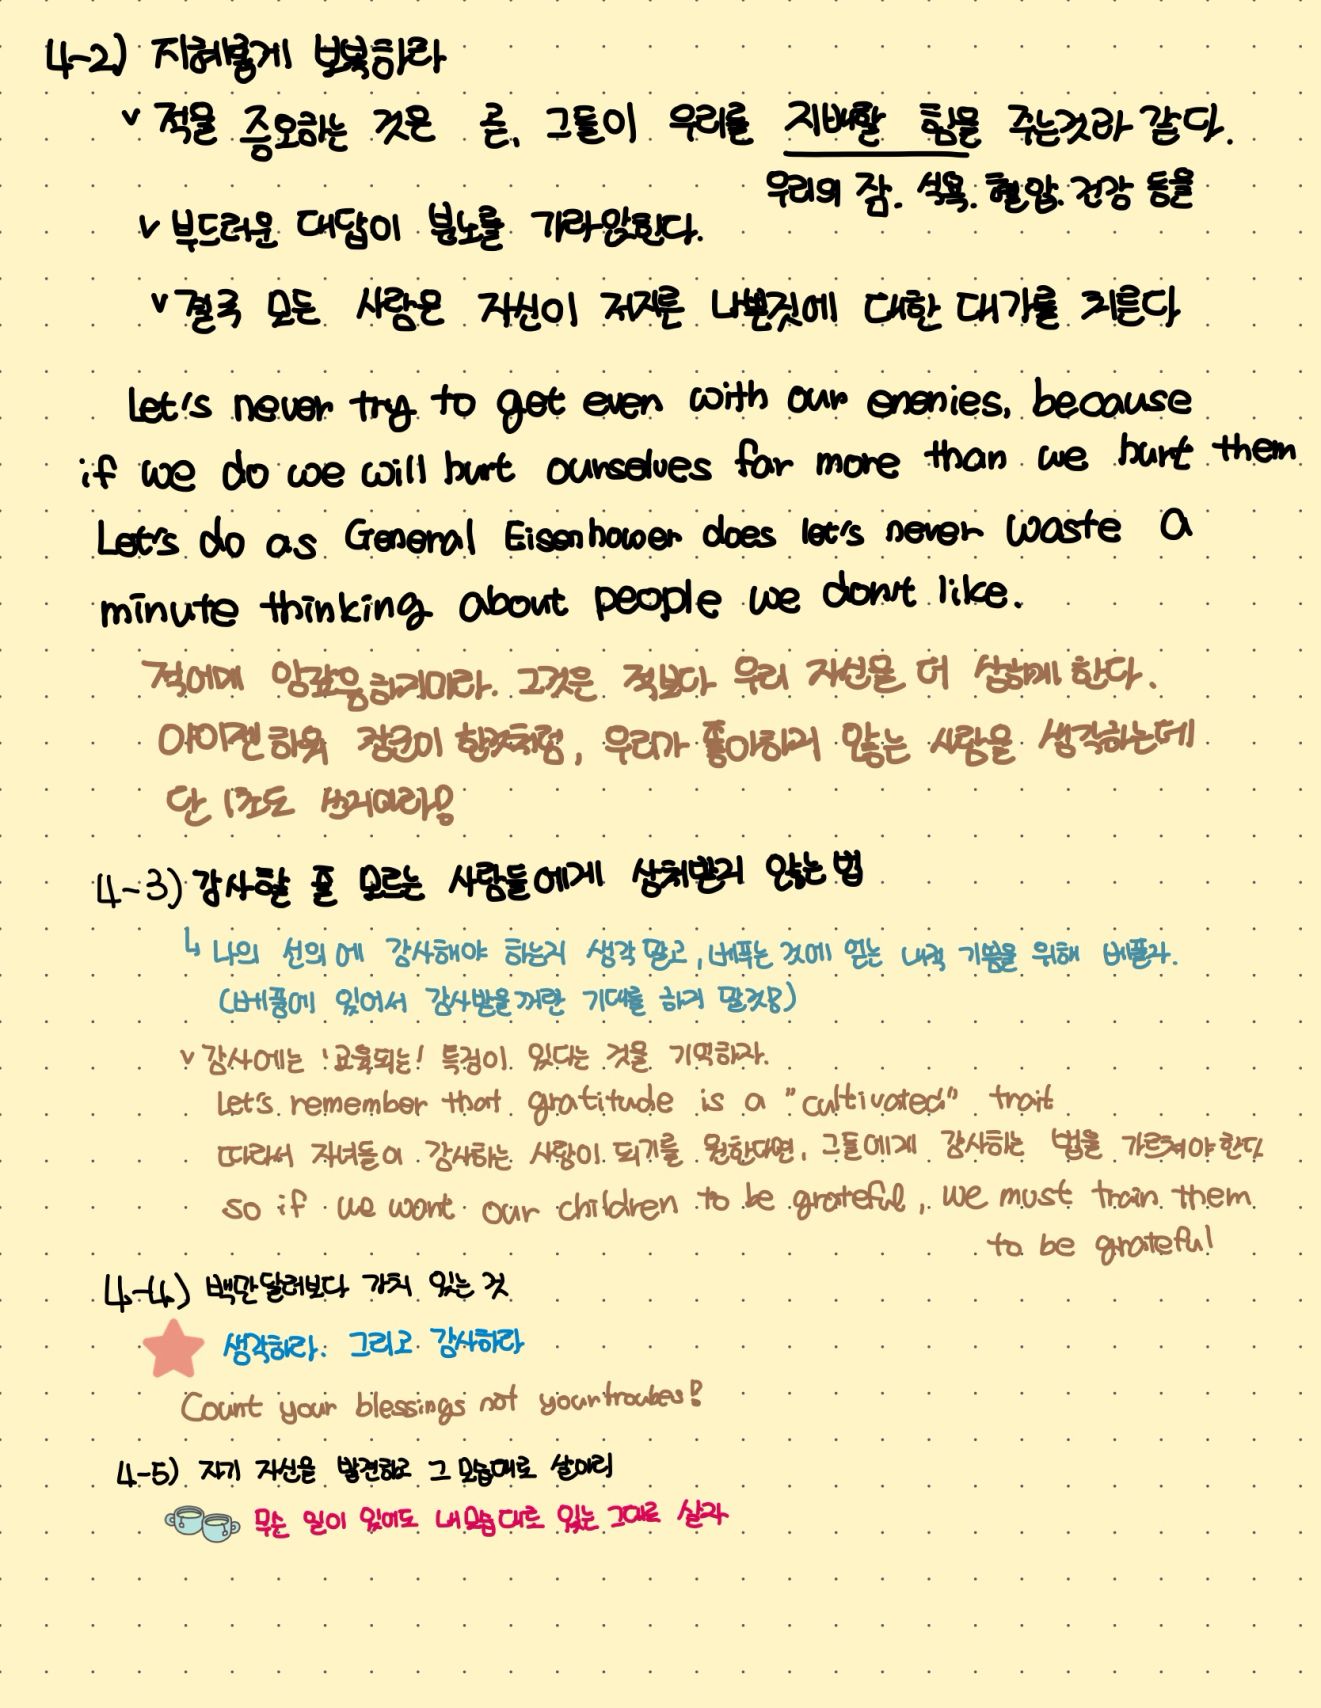 4-2) 지혜롭게 보복하라
v 적을 증오하는 것은 곧, 그들이 우리를 지배할 힘을 주는것과 같다.
우리의 잠. 식욕. 혈압. 건강 등을
v 부드러운 대답이 분노를 가라앉힌다.
v 결국 모든 사람은 자신이 저지른 나쁜짓에 대한 대가를 치른다
Let's never try to get even with our enenies, because
if we do we will hurt ourselves far more than we hurt them
Let's do as General Eisenhower does let's never waste a
minute thinking about people we don't like.
적에게 앙갚음하지마라. 그것은 적보다 우리 자신을 더 상하게 한다.
아이젠하워 장군이 한것처럼, 우리가 좋아하지 않는 사람을 생각하는데
단 1초도 쓰지마라!
4-3) 감사할 줄 모르는 사람들에게 상처받지 않는 법
↳ 나의 선의에 감사해야 하는지 생각 말고, 베푸는 것에 얻는 내적 기쁨을 위해 베풀자.
(베풂에 있어서 감사받을꺼란 기대를 하지 말것!)
v 감사에는 '교육되는' 특징이 있다는 것을 기억하자.
Let's remember that gratitude is a "cultivated" trait
따라서 자녀들이 감사하는 사람이 되기를 원한다면, 그들에게 감사하는 법을 가르쳐야한다
so if we want our children to be grateful, we must train them
to be grateful
4-4) 백만달러보다 가치 있는 것
생각하라. 그리고 감사하라
Count your blessings not your troubes!
4-5) 자기 자신을 발견하고 그 모습대로 살아라
무슨 일이 있어도 내모습대로 있는 그대로 살자